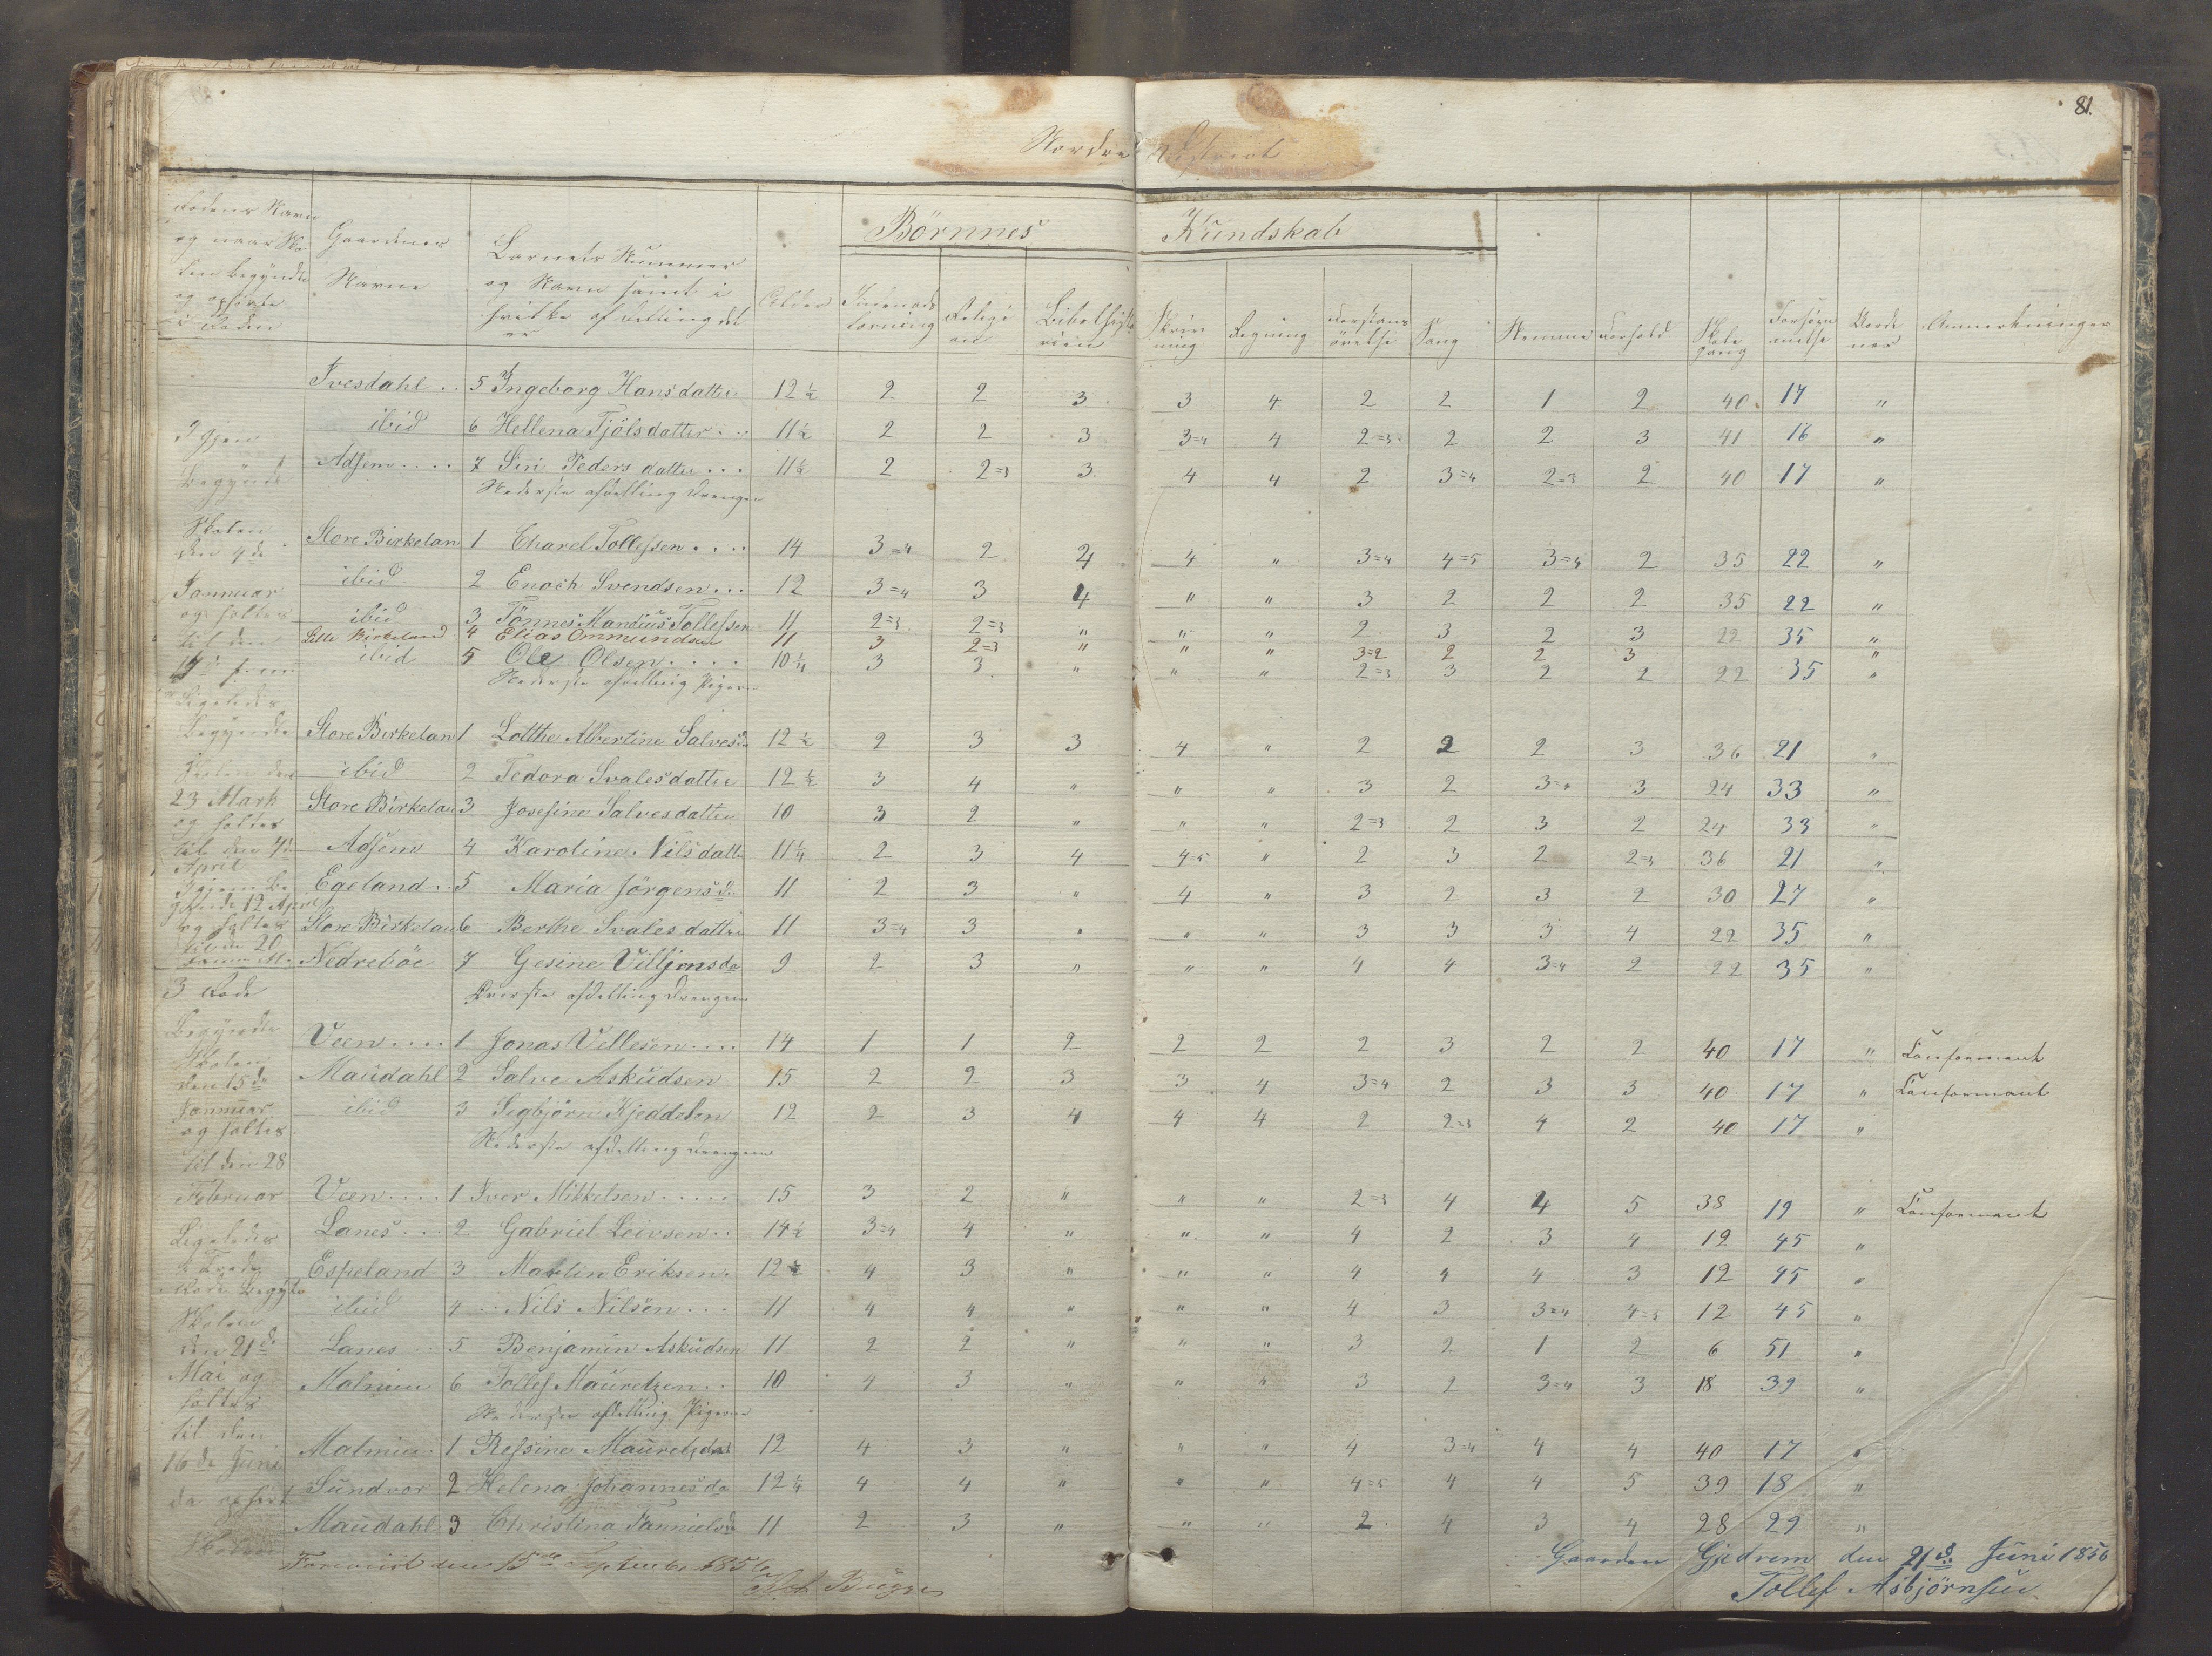 81.
Nordre District
Rodens Navn og naar Skolen begyndte og ophörte i Roden
Gaardenes Navne
Barnets Nummer og Navn samt i hvilke afdelling det er
Alder
Börnnes Kundskab
Innenads læsning
Religion
Bibelhistorien
Skrivning
Regning
Forstands övelse
Sang
Nemme
Forhold
Skolegang
Forsömmelse
Anmerkninger
Ivesdahl . . 5 Ingeborg Hansdatter 12 1/2 2 2 3 3 4 2 2 1 2 40 17 "
ibid 6 Hellena Tjölsdatter . . 11 1/2 2 2 3 3=4 4 2=3 2 2 3 41 16 "
Adsem . . . . 7 Siri Peders datter . . . 11 1/2 2 2=3 3 4 4 2 3=4 2=3 2 40 17 "
Nederste afdelling Drengene
Store Birkelan 1 Charel Tollefsen . . . . 14 3=4 2 4 4 " 3=4 4=5 3=4 2 35 22 "
ibid 2 Enoch Svendsen . . . 12 3=4 3 4 " " 3 2 2 2 35 22 "
ibid 3 Tönnes Mandius Tollefsen 11 2=3 2=3 " " " 2 3 2 3 22 35 "
Lille Birkeland 4 Elias Ommundsen 11 3 2=3 " " " 3=2 2 2 3 "
ibid 5 Ole Olsen . . . . 10 1/4 3 3 " " " 2=3 3 2 2 22 35 "
Nederste afdelling Pigerne
Store Birkelan 1 Lotthe Albertine Salvesd 12 1/2 2 3 3 4 " 2 2 2 3 36 21 "
ibid 2 Tedora Svalesdatter 12 1/2 3 4 " " " 3 2 3=4 3 24 33 "
Store Birkelan 3 Josefine Salvesdatter 10 3 2 " " " 2=3 2 3 2 24 33 "
Adsem 4 Karoline Nilsdatter 11 1/4 2 3 4 4=5 " 2 3 2 2=3 36 21 "
Egeland . . 5 Maria Jörgensd 11 2 3 " 4 " 3 2 3 2 30 27 "
Store Birkelan 6 Berthe Svalesdatter 11 3=4 3 " " " 3 3 3 4 22 35 "
Nedreböe 7 Gesine Villjomsda 9 2 3 " " " 4 4 3=4 2 22 35 "
Överste afdelling Drengene
Veen . . . . 1 Jonas Vellesen . . . . 14 1 1 2 2 2 2 3 2 2 40 17 " Konfermant
Maudahl 2 Salve Askudsen 15 2 2 3 3 4 3=4 2 3 3 40 17 " Konfermant
ibid 3 Segbjörn Kjeddelsen 12 2 3 4 4 4 2 2=3 4 2 40 17 "
Nederste afdelling Drengene
Veen . . . . 1 Iver Mikkelsen . . . . . 15 3 2 " " " 2=3 4 4 5 38 19 " Konfermant
Lanes . . . 2 Gabriel Leivsen . . 14 1/2 3=4 4 " " " 4 2 3 4 12 45 "
Espeland 3 Martin Eriksen . 12 1/2 4 3 " " " 4 4 4 3 12 45 "
ibid 4 . . Nils Nilsen . . . 11 4 4 " " " 4 3 3=4 4=5 12 45 "
Lanes . . 5 Benjamin Askudsen 11 2 2 " " " 3 2 1 2 6 51 "
Malmim 6 Tollef Mauretzen . . 10 4 3 " " " 3 2 3=4 3 18 39 "
Nederste afdelling Pigerne
Malmim 1 Resine Mauretzdat 12 4 3 " " " 4 3=4 4 4 40 17 "
Sundvor 2 Helena Johannesda 12 1/4 4 4 " " " 4=5 4 4 5 39 18 "
Maudahl 3 Christina Tannielsd 11 2 3 " " " 2 4 3 4 28 29 "
Igjen Begynde Skolen den 4de Jannuar og holtes til den 17
Ligeledes Begyndte Skolen den 23 Marts og holtes til den 4de April
Igjen Begynde 12 April og holtes til den 20
3 Rode
Begyndte Skolen den 15de Jannuar og holtes til den 28 Februar
Ligeledes i Tredie Rode Begyte Skolen den 21de Mai og holtes til den 16de Juni da ophört Skolen
Foreviist den 15de September 1856
Bugge
Gaarden Gjedrem den 21de Juni 1856
Tollef Asbjörnsen